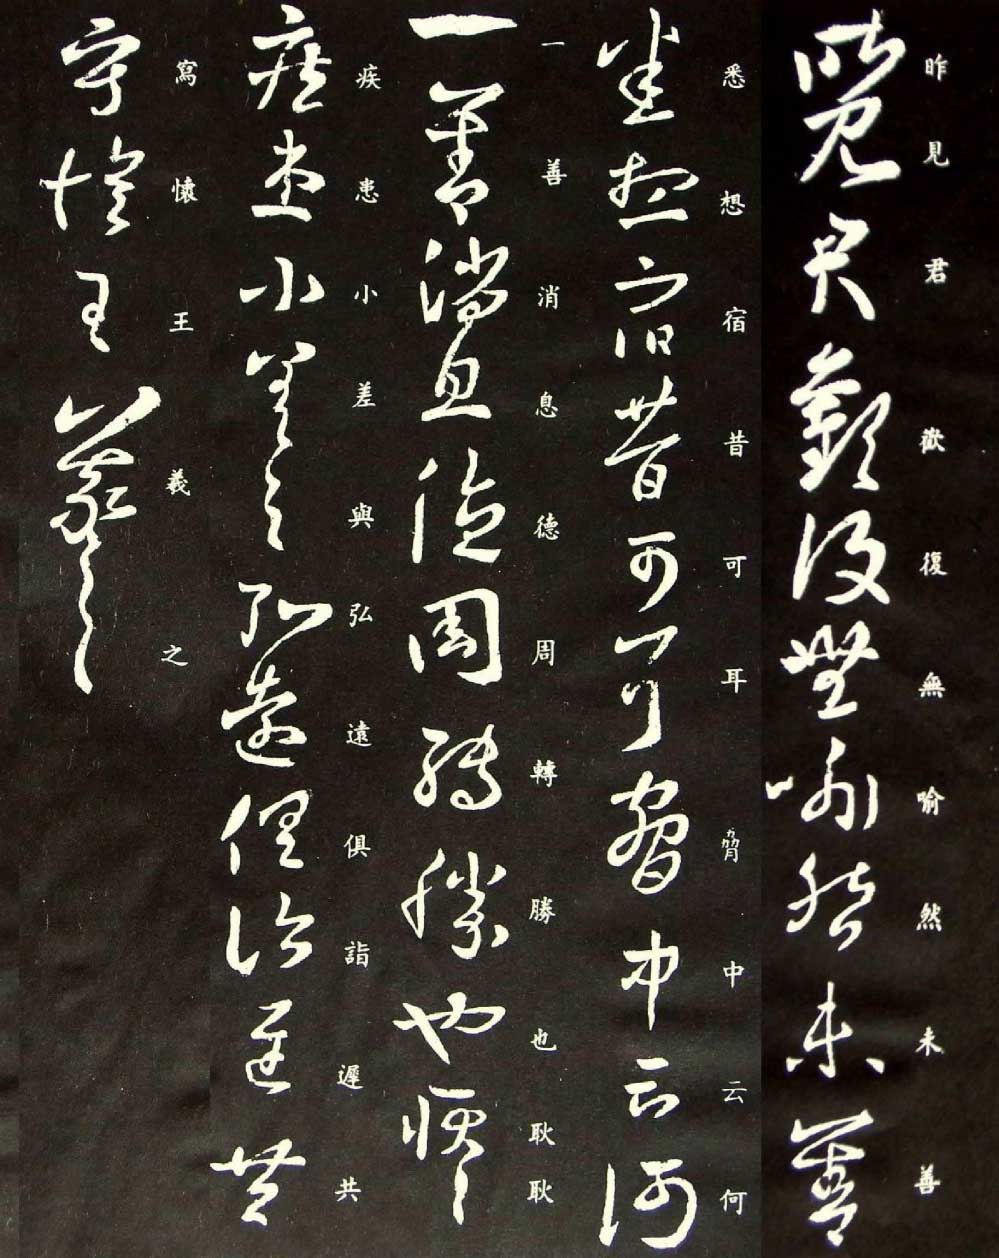 昨見君歡復無喻然未善
悉想宿昔可耳中云何
一善消息德周轉勝也耿耿
疾患小差與弘遠俱詣遲共
寫懷王羲之